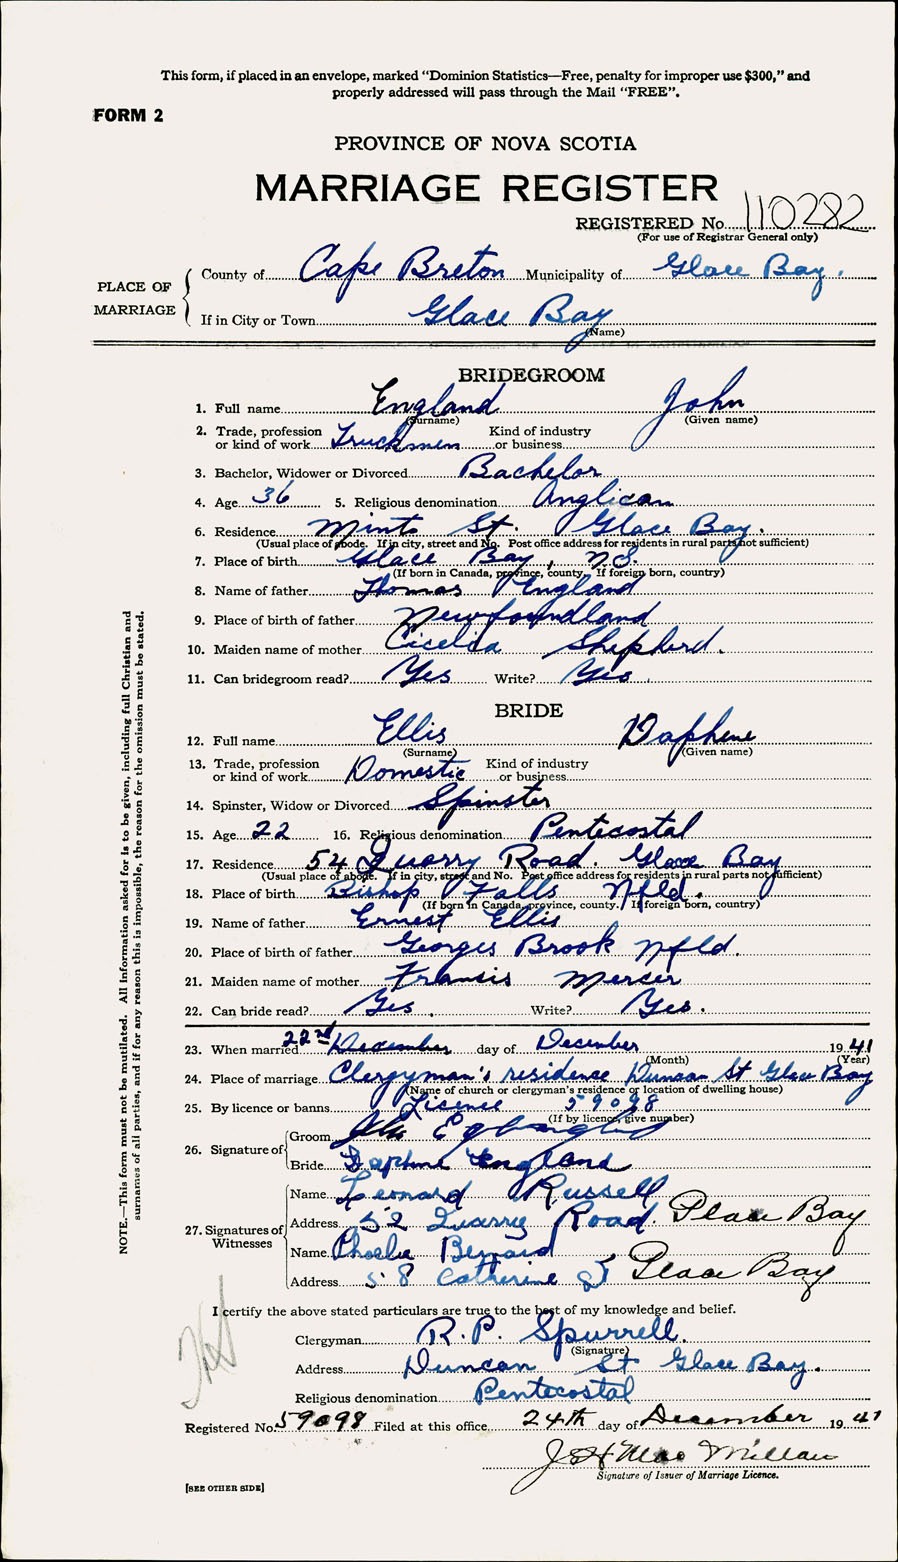 This form, if placed in an envelope, marked “Dominion Statistics—Free, penalty for improper use $300,” and
properly addressed will pass through the Mail “FREE”.
FORM 2
PROVINCE OF NOVA SCOTIA
MARRIAGE REGISTER
REGISTERED No. 110282
(For use of Registrar General only)
PLACE OF MARRIAGE
County of Cape Breton Municipality of Glace Bay.
If in City or Town Glace Bay
(Name)
BRIDEGROOM
1. Full name England John
(Surname) (Given name)
2. Trade, profession or kind of work Truckmen Kind of industry or business
3. Bachelor, Widower or Divorced Bachelor
4. Age 36 5. Religious denomination Anglican
6. Residence Minto St. Glace Bay.
(Usual place of abode. If in city, street and No. Post office address for residents in rural parts not sufficient)
7. Place of birth Glace Bay, N.S.
(If born in Canada, province, county. If foreign born, country)
8. Name of father Thomas England
9. Place of birth of father Newfoundland
10. Maiden name of mother Cicelia Shepherd.
11. Can bridegroom read? Yes Write? Yes.
BRIDE
12. Full name Ellis Daphene
(Surname) (Given name)
13. Trade, profession or kind of work Domestic Kind of industry or business
14. Spinster, Widow or Divorced Spinster
15. Age 22 16. Religious denomination Pentecostal
17. Residence 54 Quarry Road. Glace Bay
(Usual place of abode. If in city, street and No. Post office address for residents in rural parts not sufficient)
18. Place of birth Bishop Falls Nfld.
(If born in Canada, province, county. If foreign born, country)
19. Name of father Ernest Ellis
20. Place of birth of father Georges Brook Nfld.
21. Maiden name of mother Fransis Mercer
22. Can bride read? Yes. Write? Yes.
23. When married 22nd December day of December 1941
(Month) (Year)
24. Place of marriage Clergyman's residence Duncan St Glace Bay
(Name of church or clergyman's residence or location of dwelling house)
25. By licence or banns Licence 59098
(If by licence, give number)
26. Signature of
Groom
Bride Daphne England
27. Signatures of Witnesses
Name Leonard Russell
Address 52 Quarry Road. Glace Bay
Name Phoebe Bernard
Address 58 Catherine St Glace Bay
I certify the above stated particulars are true to the best of my knowledge and belief.
Clergyman R.P. Spurrell.
(Signature)
Address Duncan St Glace Bay.
Religious denomination Pentecostal
Registered No. 59098 Filed at this office 24th day of December 1941
J H Mac Millan
Signature of Issuer of Marriage Licence.
[SEE OTHER SIDE]
NOTE.—This form must not be mutilated. All information asked for is to be given, including full Christian and
surnames of all parties, and if for any reason this is impossible, the reason for the omission must be stated.